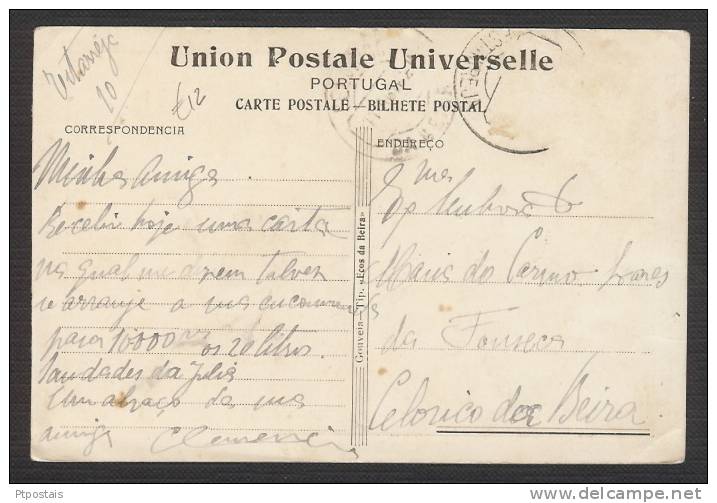 Union Postale Universelle
PORTUGAL
CARTE POSTALE — BILHETE POSTAL
CORRESPONDENCIA
ENDEREÇO
10
£12
Minha amiga
Recebi hoje uma carta
na qual me dizem talvez
se arranje a sua encomenda
para 10000 os 20 litros.
Saudades da Julia
Um abraço da sua
amiga Clemencia
Gouveia—Tip. «Ecos da Beira»
Exma
Senhora D
Maria do Carmo Soares
da Fonseca
Celorico da Beira
Ptpostais
delcampe.net